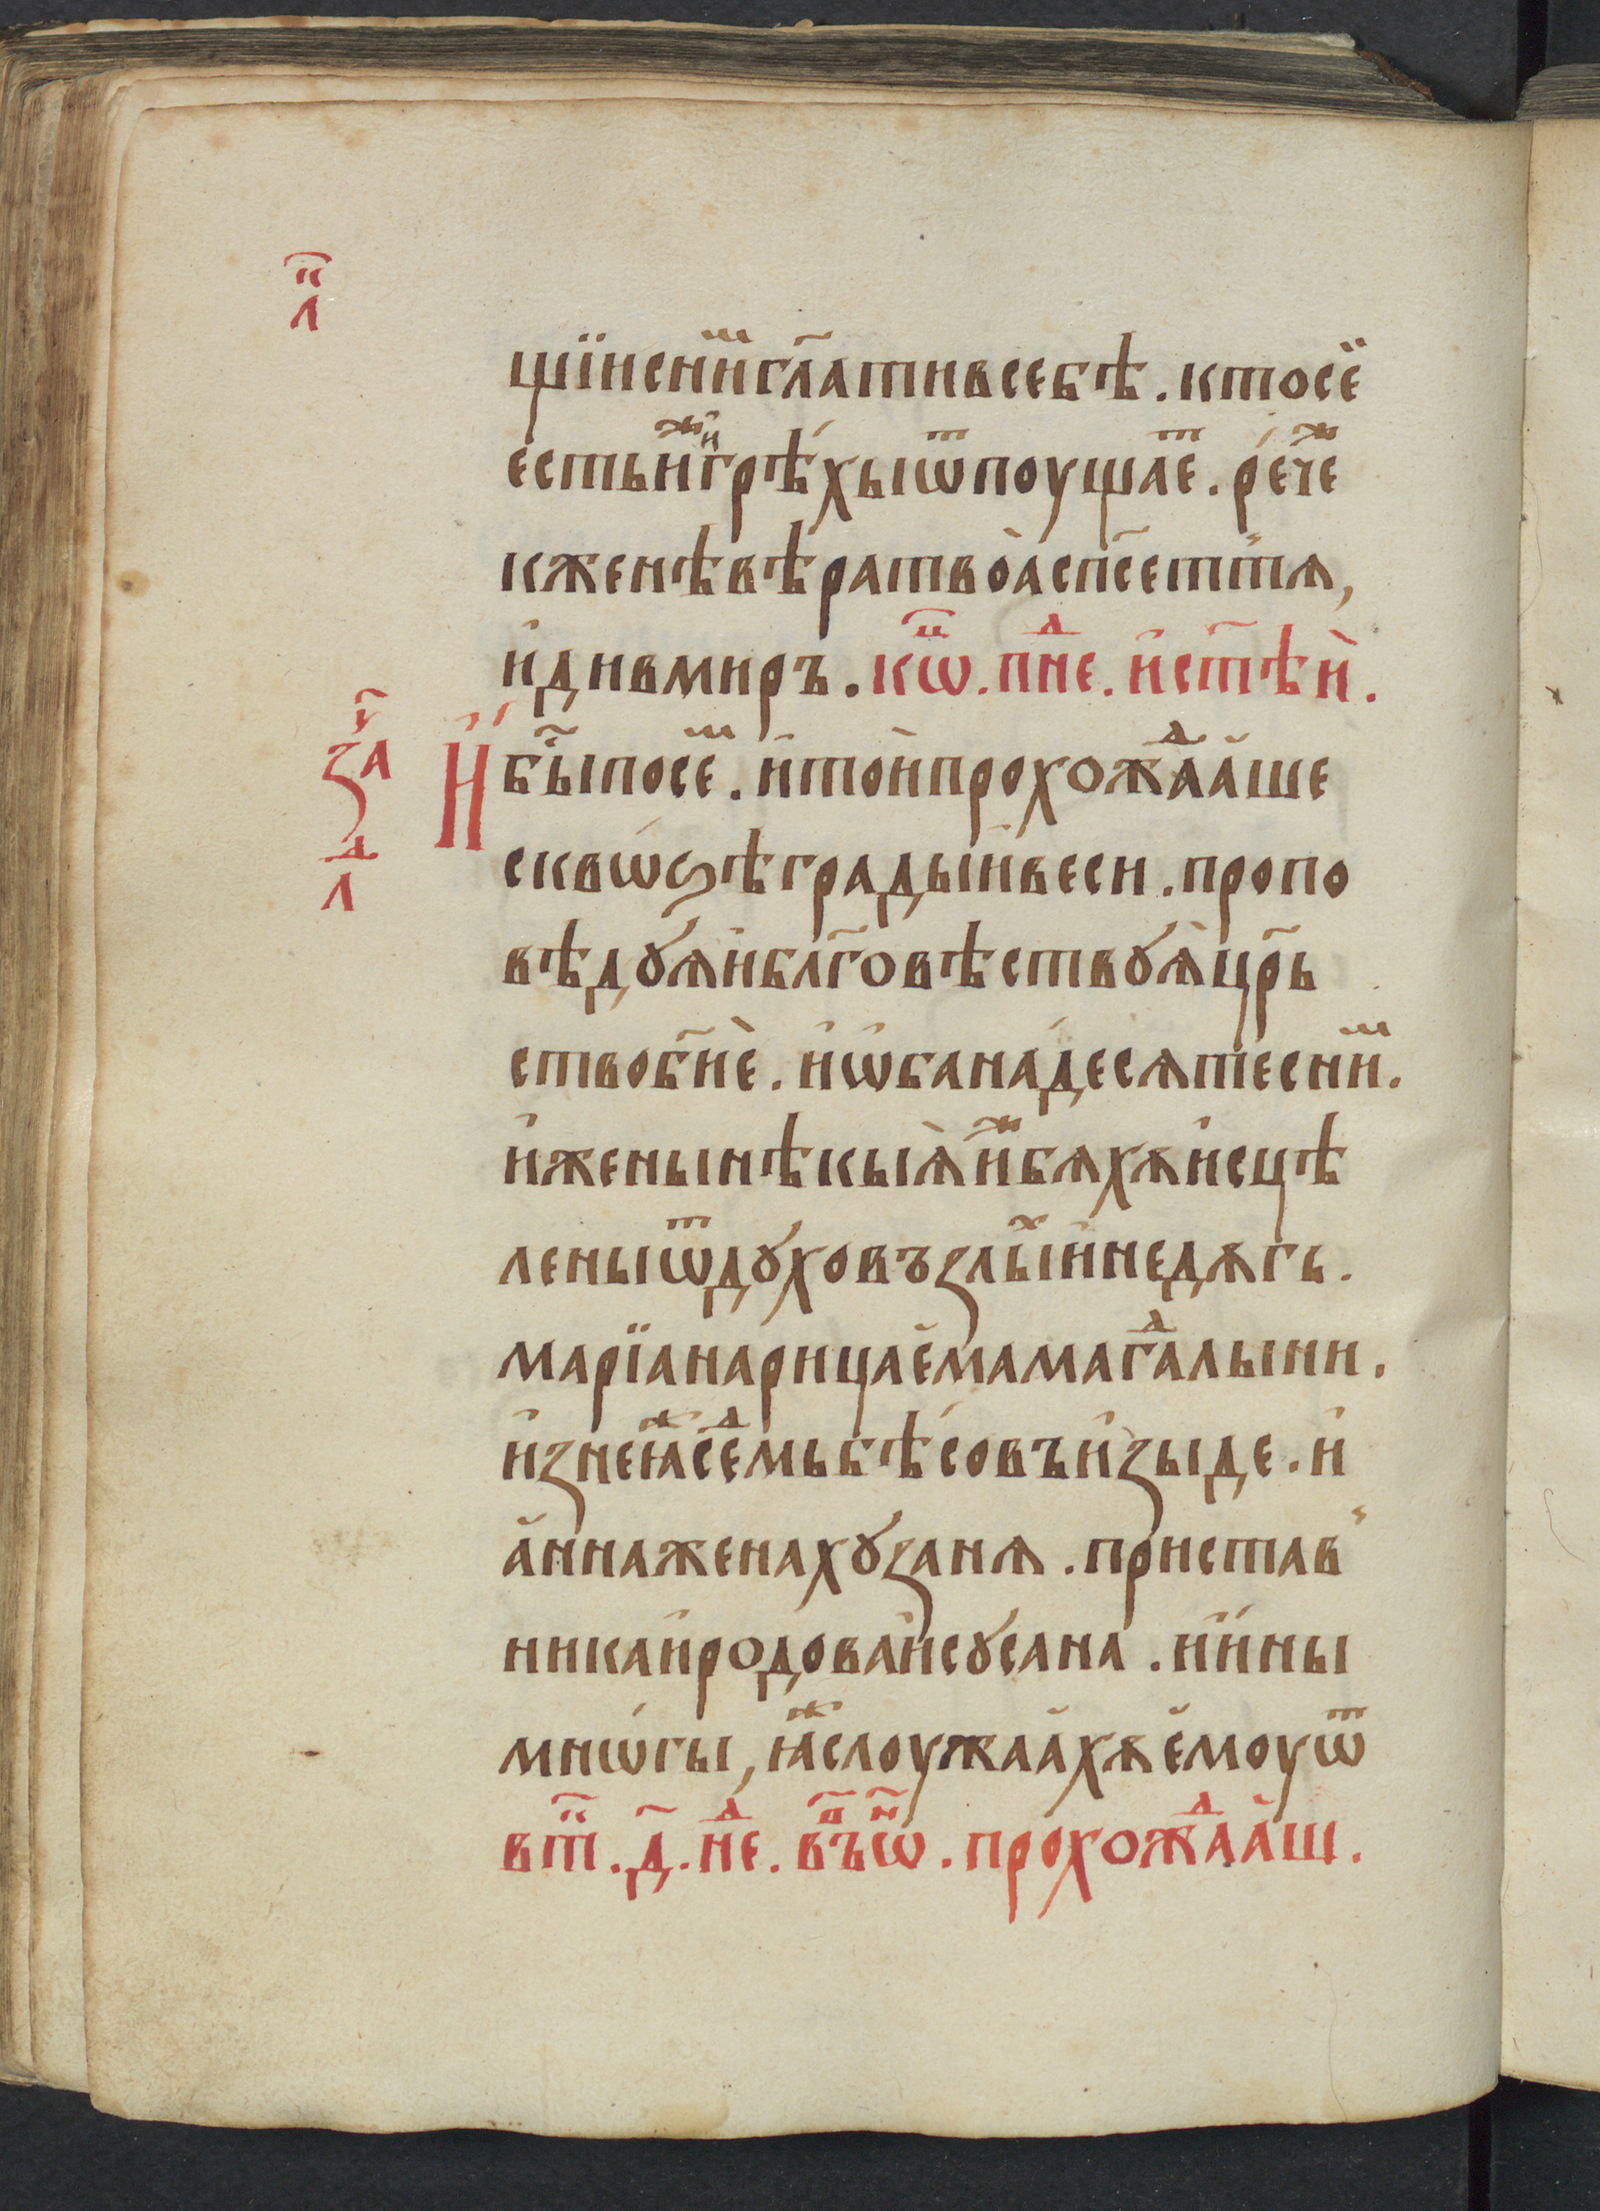 п
л
щїи с ни́ш гл҃ати в себѣ . кто се́й
е́сть и́ж и грѣ́хы ѿпоуща́е . ре́че ж
к женѣ вѣ́ра твоа̀ сп҃сет тѧ ,
и҆ди в миръ . кѡц . пнед . и҆ ст҃ѣй .
за҃ч
л҃д
И бы҃ по се́м . и҆ то́й прохожд҆а́аше
сквѡ́ѕѣ грады и҆ веси . пропо
вѣдꙋѧ и҆ бл҃говѣствꙋѧ цр҃ь
ство бж҃їе . и҆ ѡбанадесѧте с ни́м .
и҆ жены нѣкыѧ и҆ж бѧхѫ исцѣ
лены ѿ дꙋховъ злы́х и҆ недѫгь .
марїа нарицаема магдалыни .
и҆з неѧж се́дмь бѣсовъ и҆зыде . и҆
а҆нна жена хꙋзанѧ . пристав
ника и҆родова и҆ сꙋсана . и҆ и҆ны
мнѡ́гы , ꙗ҆ж слоужаахѫ е҆моу ѿ
в т҃ . д҃ . не҃д . в ъѡ҃ . прохожд҆аащ .